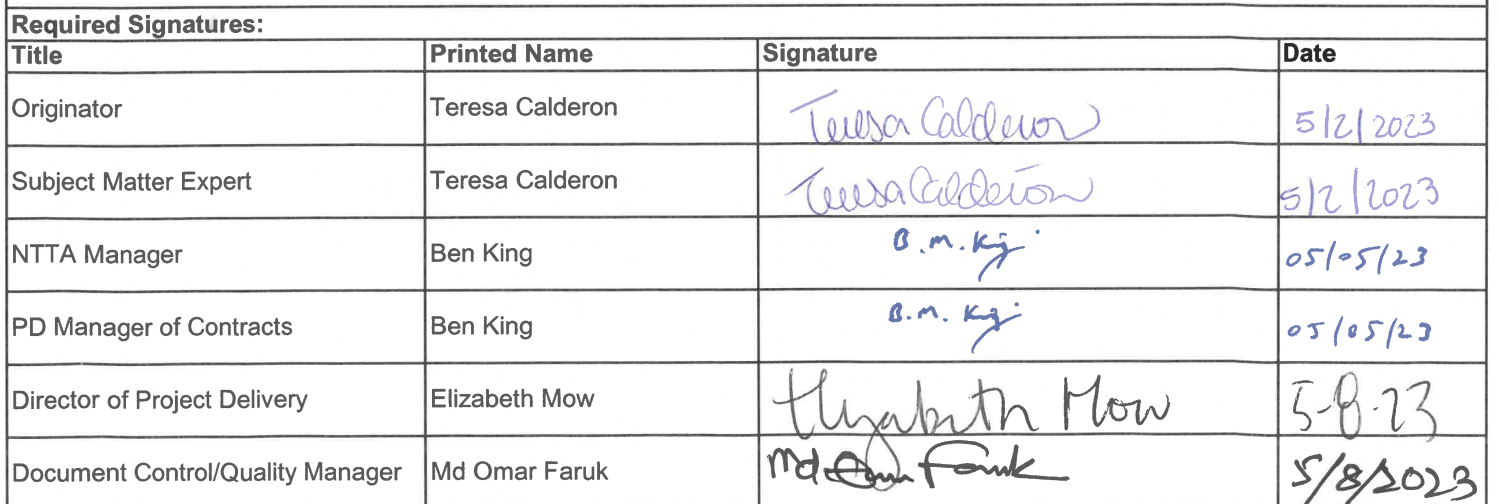 Required Signatures:
Title Printed Name Signature Date
Originator Teresa Calderon Teresa Calderon 5/2/2023
Subject Matter Expert Teresa Calderon Teresa Calderon 5/2/2023
NTTA Manager Ben King B.M. King 05/05/23
PD Manager of Contracts Ben King B.M. King 05/05/23
Director of Project Delivery Elizabeth Mow Elizabeth Mow 5-8-23
Document Control/Quality Manager Md Omar Faruk Md Omar Faruk 5/8/2023